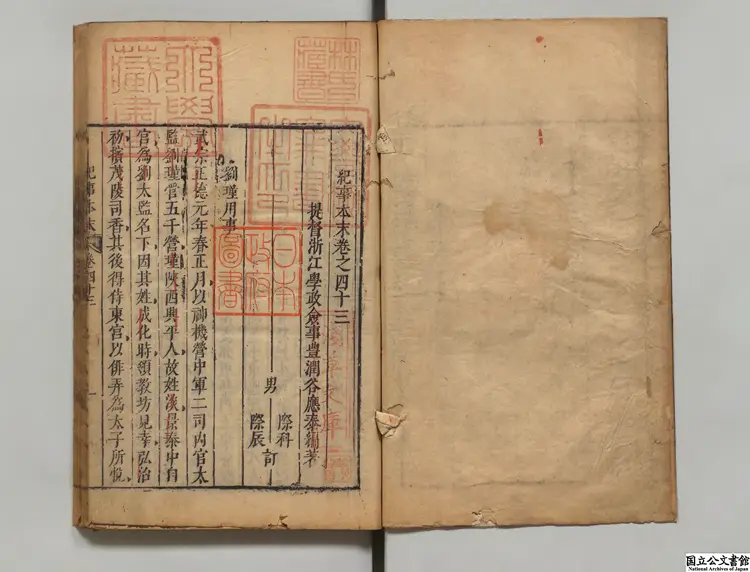 紀事本末卷之四十三
提督浙江學政僉事豐潤谷應泰編著
男
際科
際辰
訂
劉瑾用事
武宗正德元年春正月以神機營中軍二司內官太
監劉瑾管五千營瑾陝西興平人故姓淡景泰中自
宮為劉太監名下因其姓成化時領教坊見幸弘治
初擯茂陵司香其後得侍東宮以俳弄為太子所悅
紀事本末
卷四十三
林氏藏書
日本政府圖書
國立公文書館
National Archives of Japan